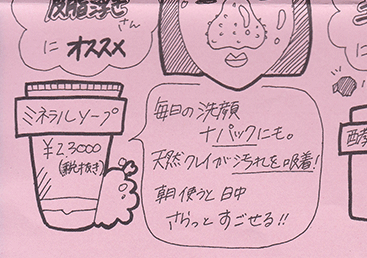 さん
に オススメ
ミネラルソープ
¥23000
(税抜き)
毎日の洗顔
+パックにも。
天然クレイが汚れを吸着!
朝使うと日中
さらっとすごせる!!